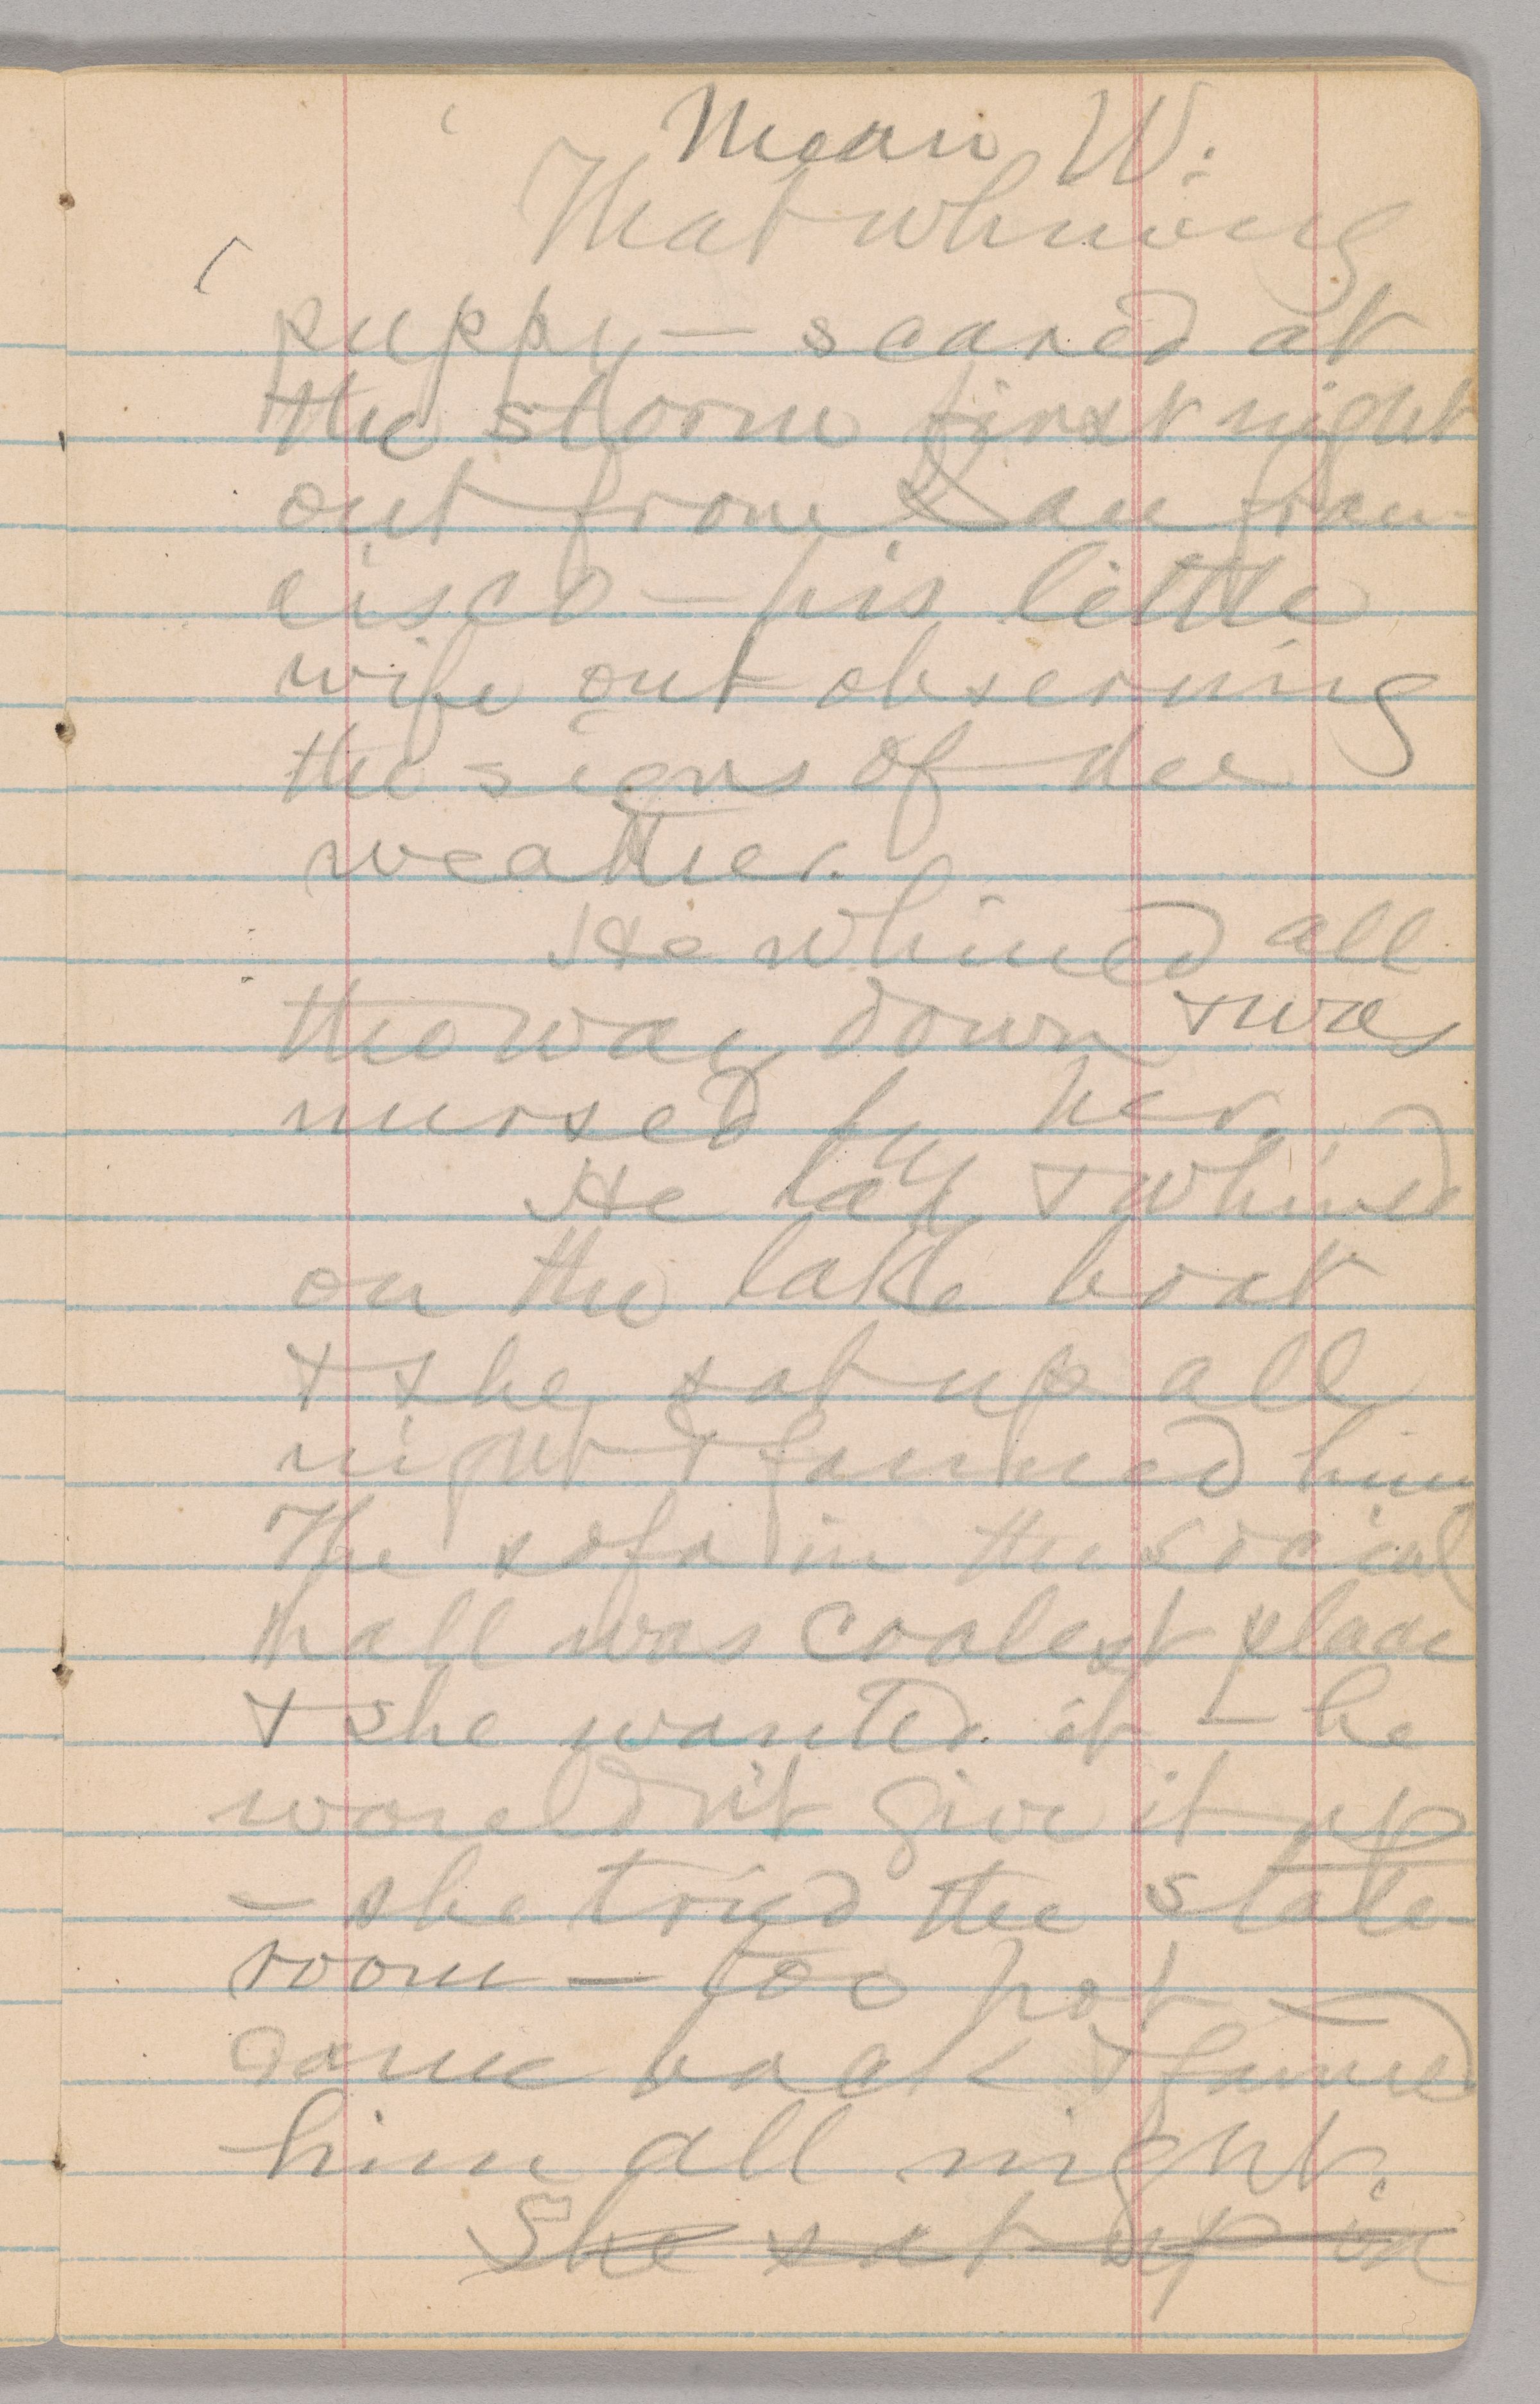 Mean W.
That whining
puppy — scared at
the storm first night
out from San Fran-
cisco — his little
wife out observing
the signs of the
weather.
He whined all
the way down & was
nursed by her.
He lay & whined
on the lake boat
& she sat up all
night & fanned him
The sofa in the social
hall was coolest place
& she wanted it — he
wouldn't give it up
— she tried the state-
room — too hot —
came back & fanned
him all night.
She sat up in